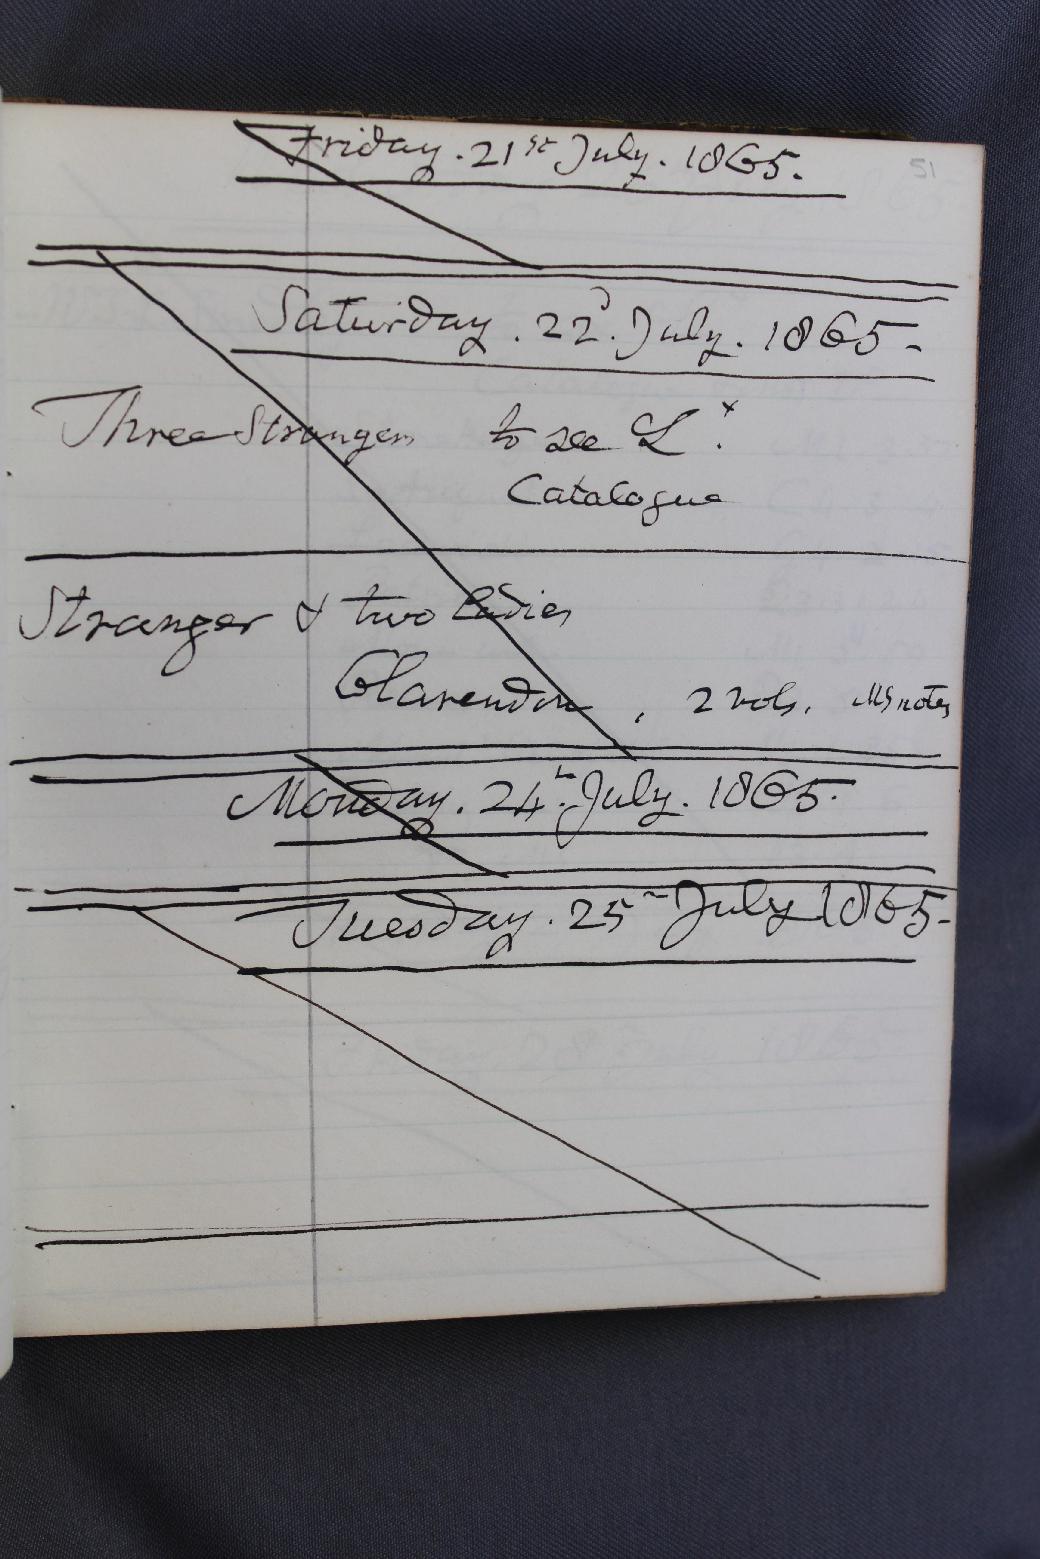 51
Friday. 21st July. 1865.
Saturday. 22d. July. 1865-
Three Strangers to see Lx.
Catalogue
Stranger & two Ladies
Clarendon, 2 vols. MS notes
Monday. 24th. July. 1865.
Tuesday. 25th July 1865-